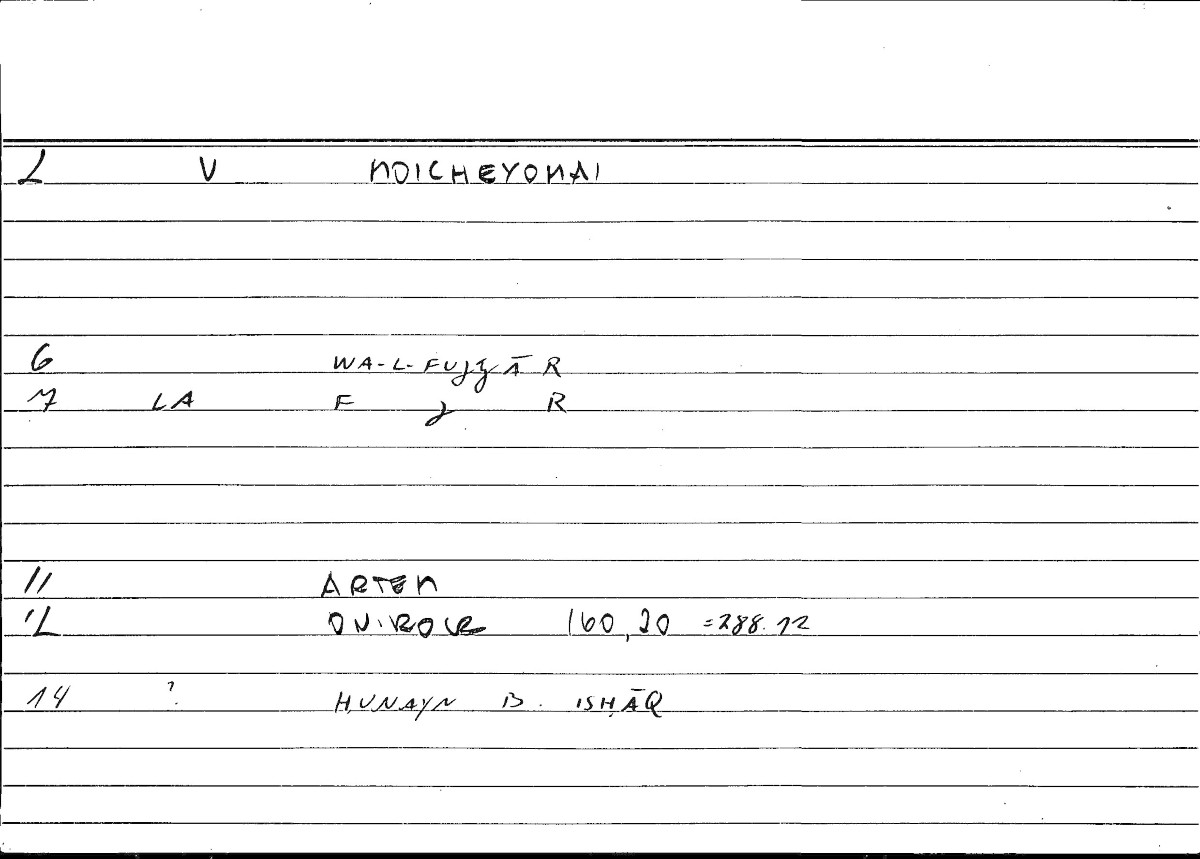 2 V MOICHEYOMAI
6 WA-L-FUJJĀR
7 LA F J R
11 ARTEM
12 ONIROCR 160,20 =288.12
14 ? ḤUNAYN B. ISḤĀQ